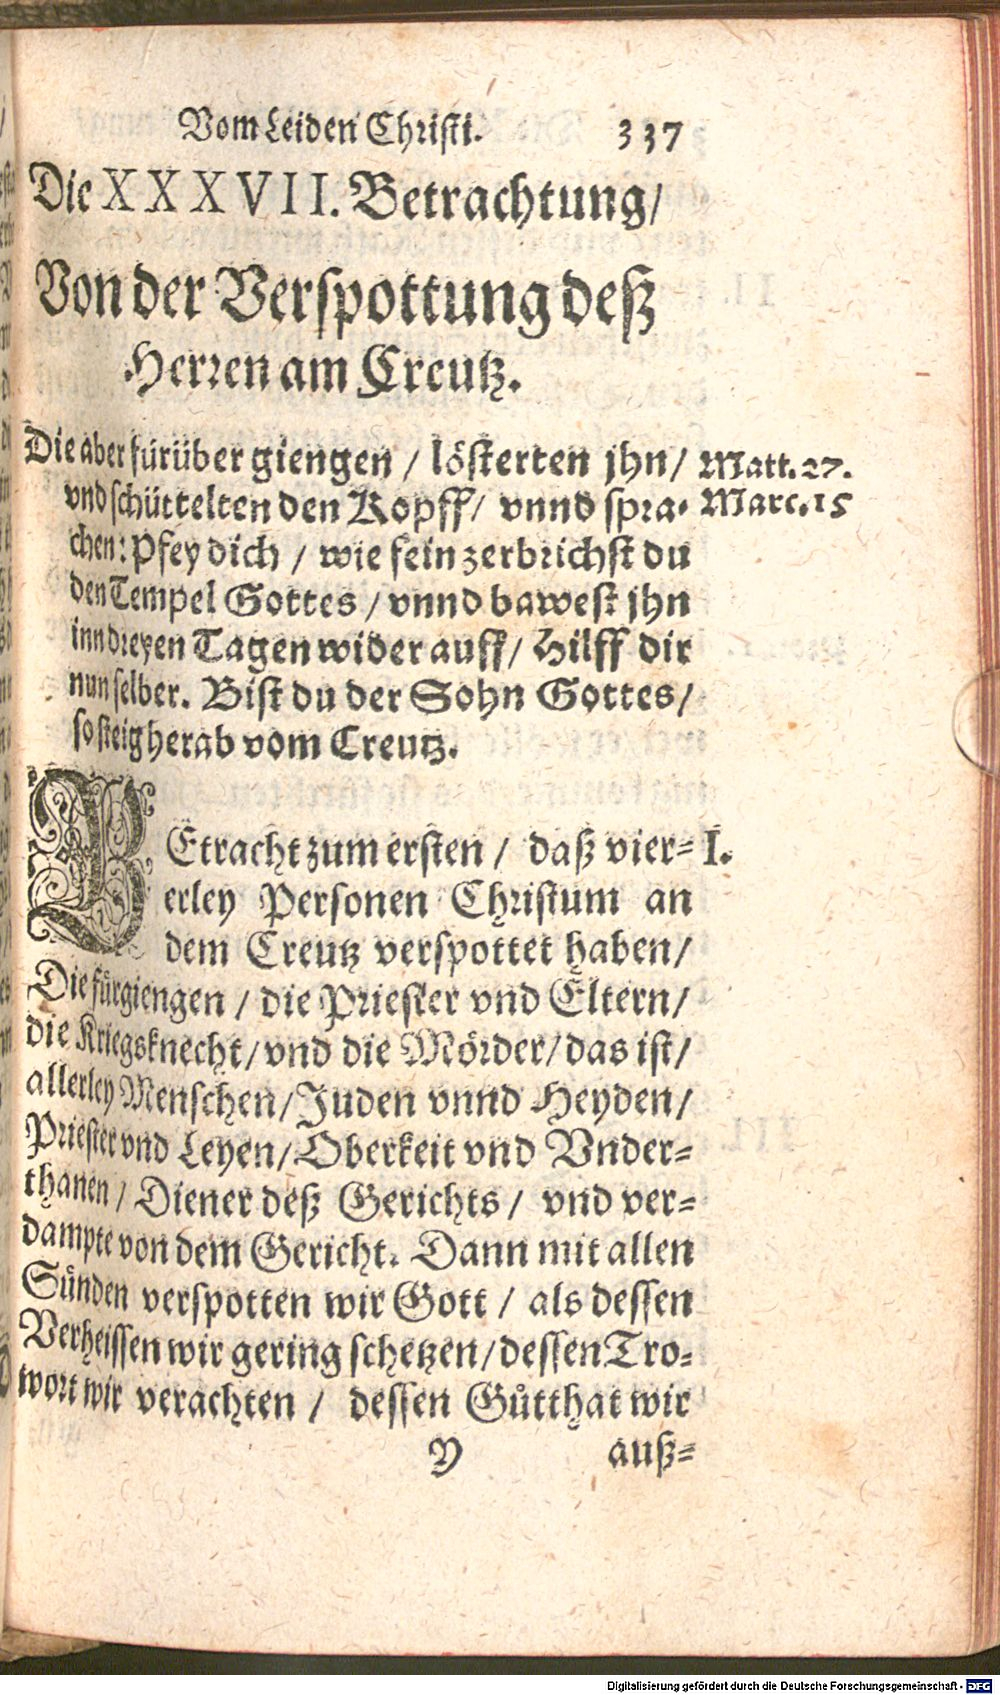 Vom Leiden Christi. 337
Die XXXVII. Betrachtung/
Von der Verspottung deß
Herren am Creutz.
Die aber fürüber giengen / lösterten jhn/ Matt. 27.
vnd schüttelten den Kopff/ vnnd spra- Marc. 15
chen: Pfey dich / wie fein zerbrichst du
den Tempel Gottes / vnnd bawest jhn
inn dreyen Tagen wider auff/ Hilff dir
nun selber. Bist du der Sohn Gottes/
so steig herab vom Creutz.
BEtracht zum ersten / daß vier- I.
erley Personen Christum an
dem Creutz verspottet haben/
Die fürgiengen / die Priester vnd Eltern/
die Kriegsknecht/ vnd die Mörder/ das ist/
allerley Menschen/ Juden vnnd Heyden/
Priester vnd Leyen/ Oberkeit vnd Vnder-
thanen / Diener deß Gerichts / vnd ver-
dampte von dem Gericht. Dann mit allen
Sünden verspotten wir Gott / als dessen
Verheissen wir gering schetzen/ dessen Tro-
wort wir verachten / dessen Gůtthat wir
Y auß-
Digitalisierung gefördert durch die Deutsche Forschungsgemeinschaft - DFG